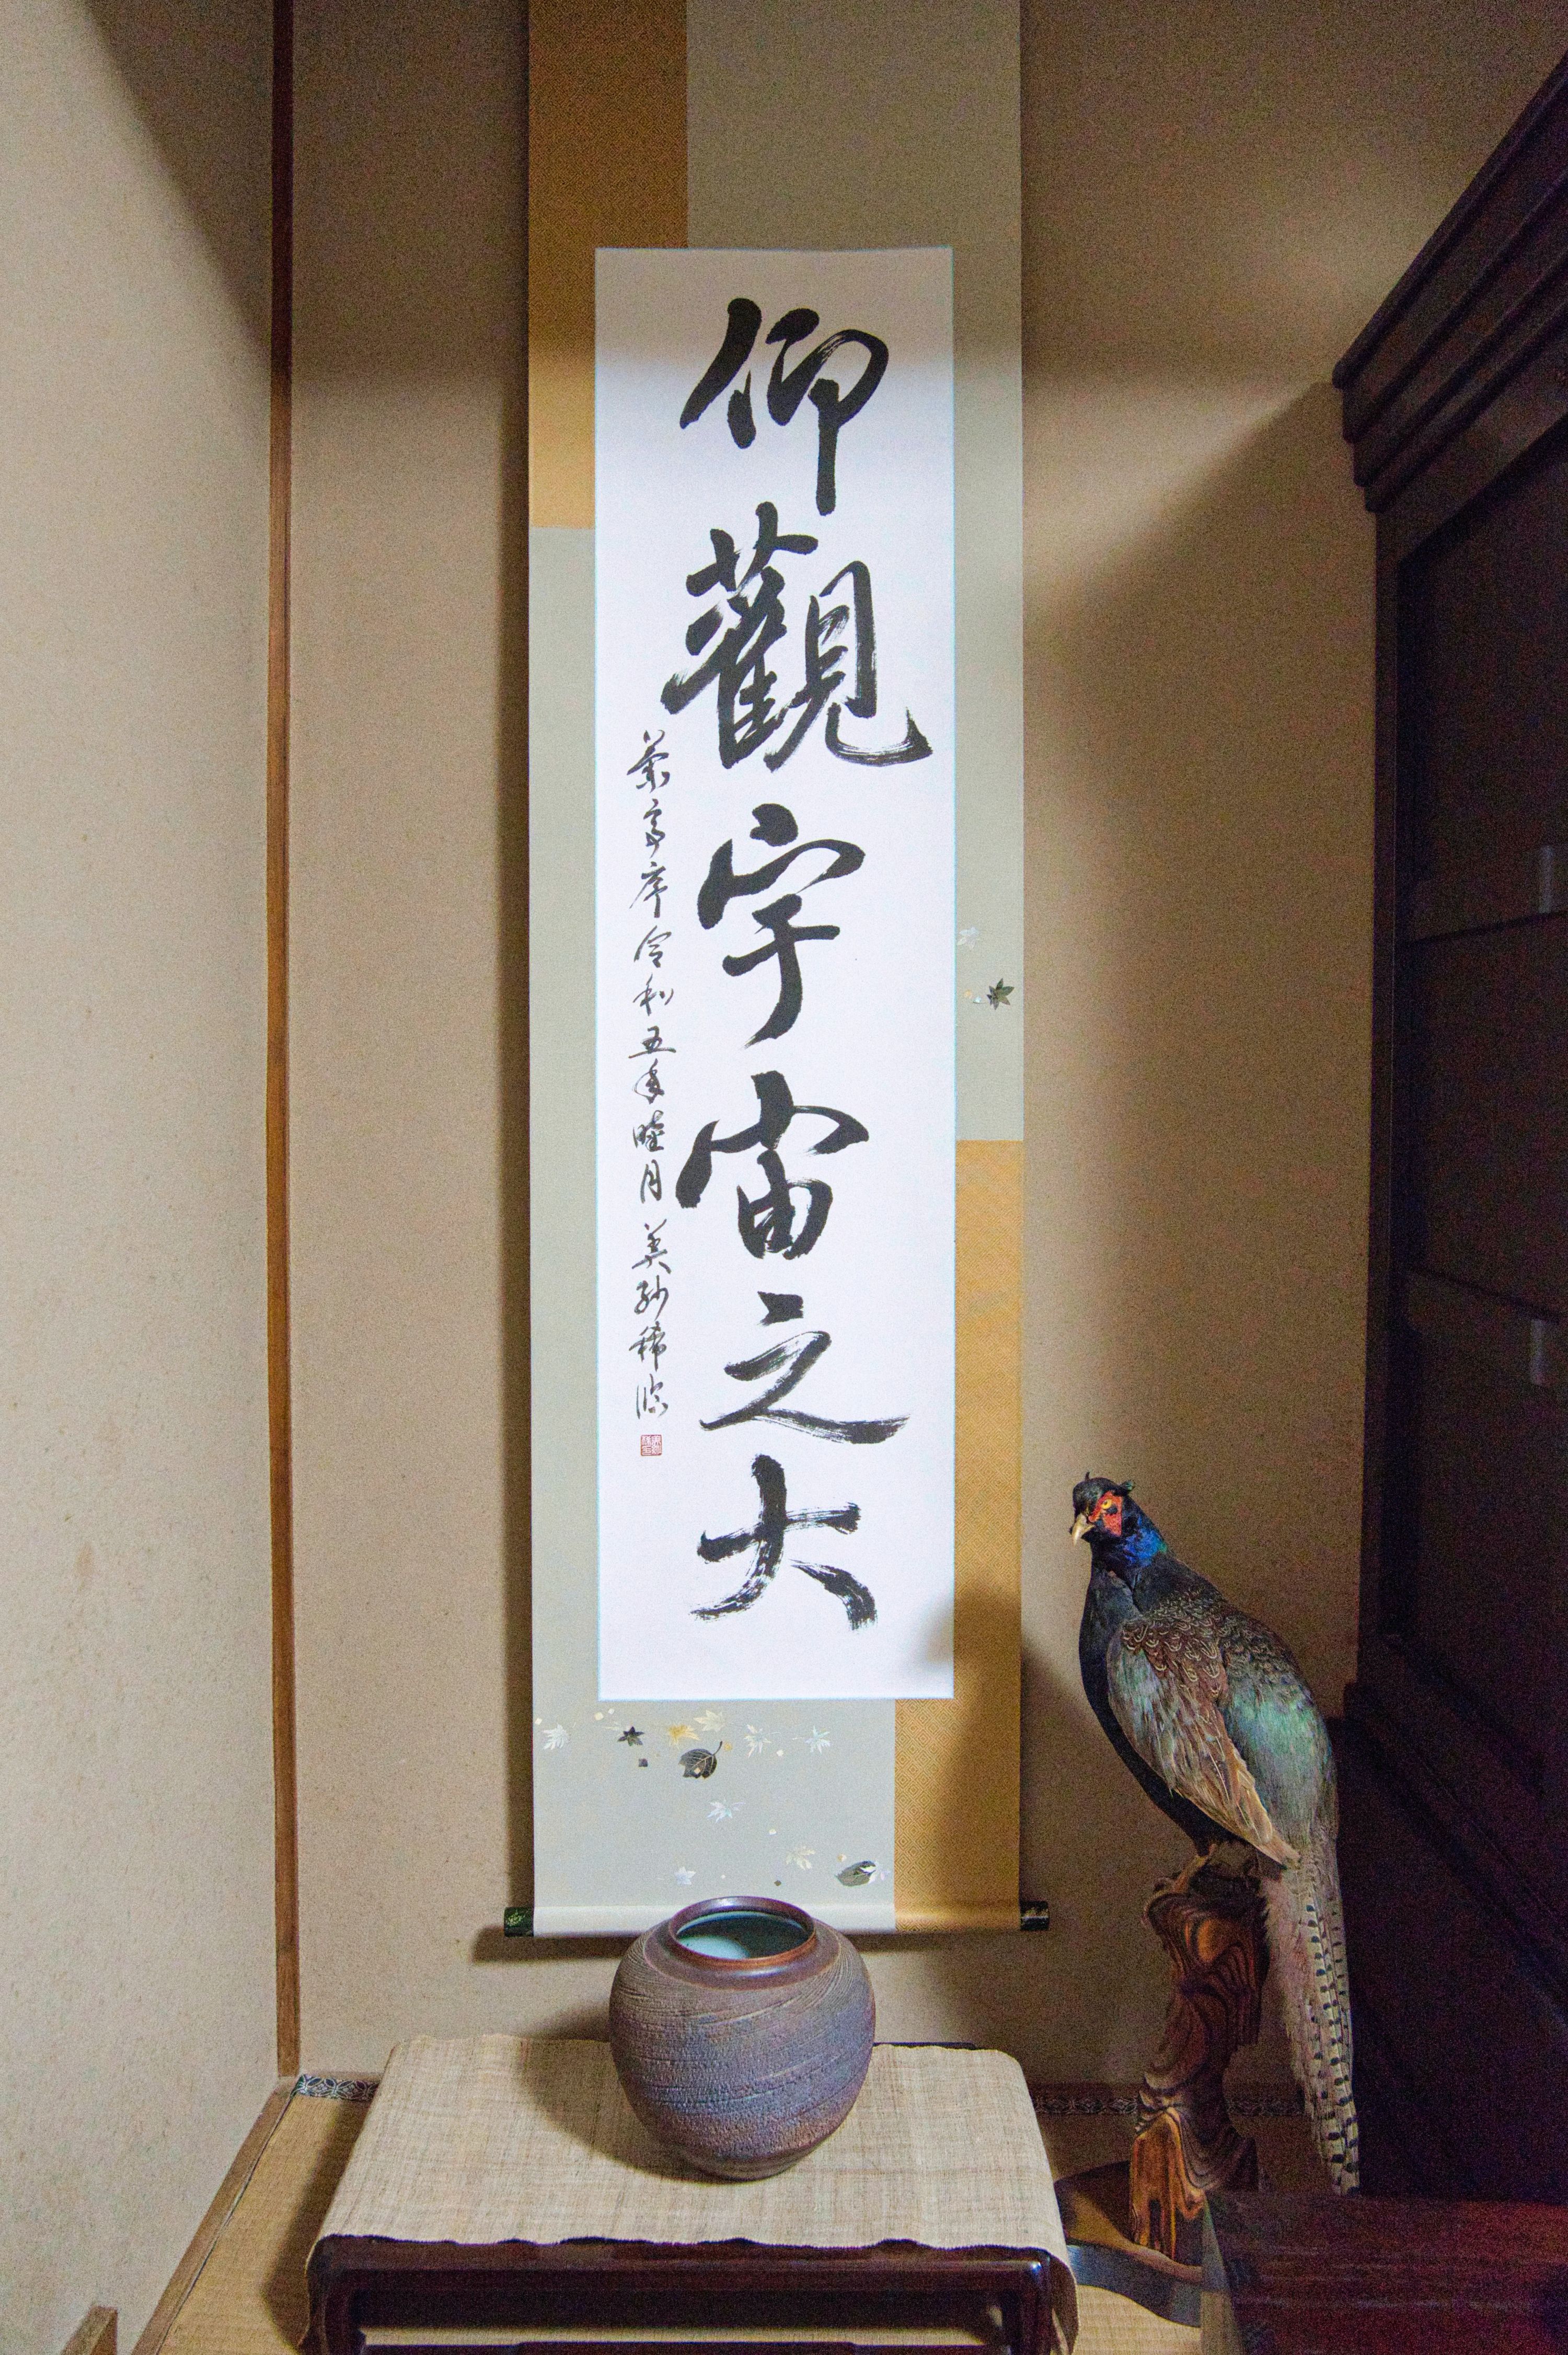 仰觀宇宙之大
蘭亭序 令和五年睦月 美紗稀臨